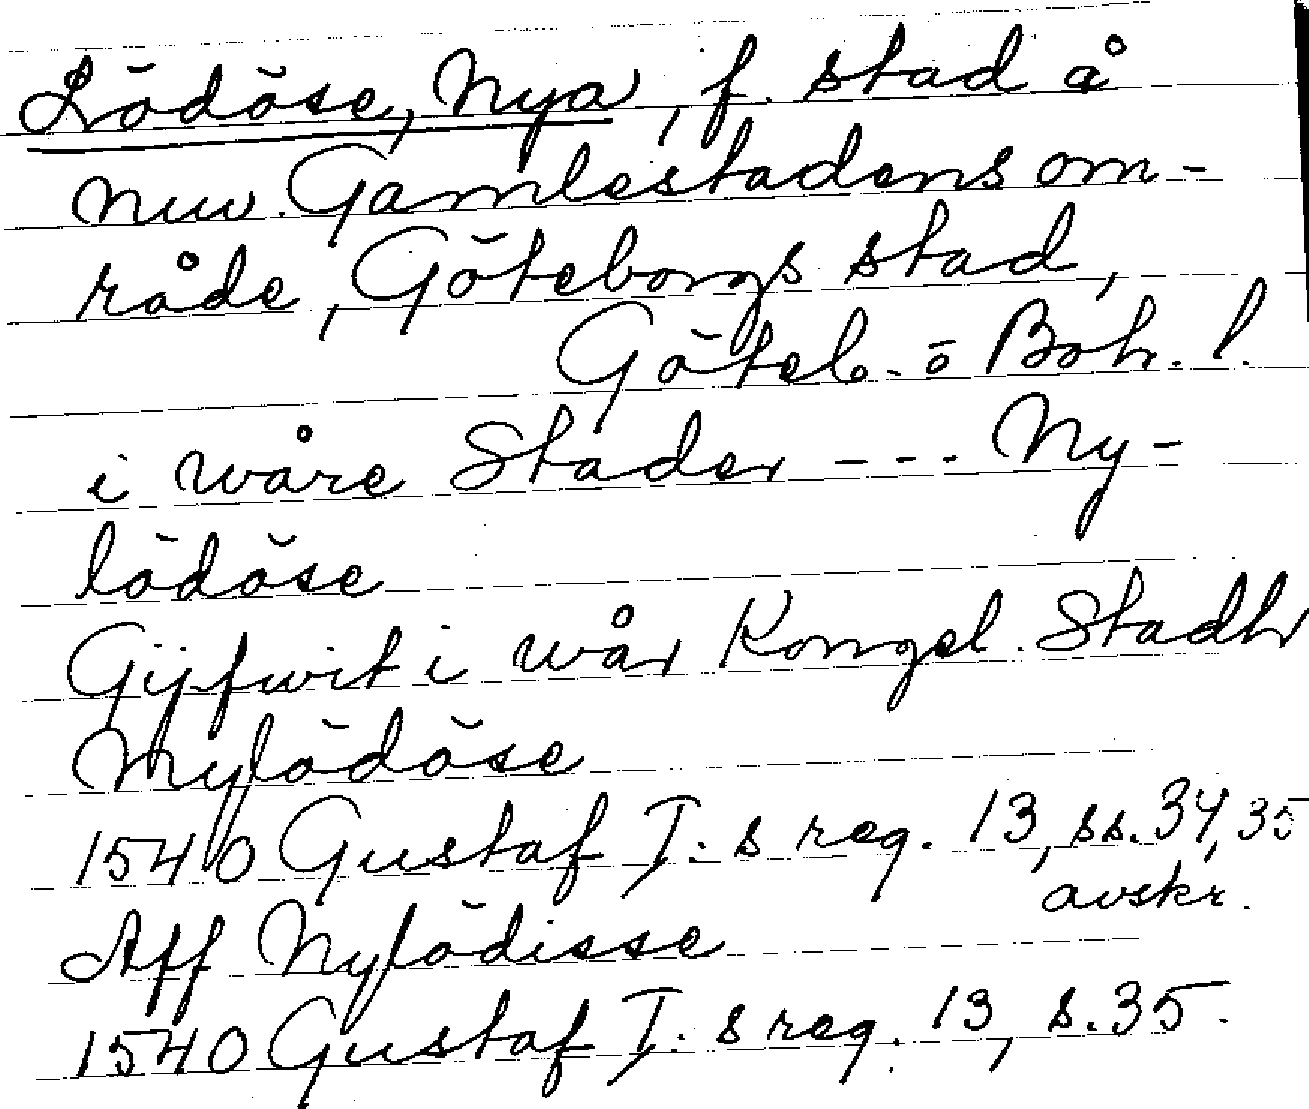 Lödöse, Nya, f. stad å
nuv. Gamlestadens om-
råde, Göteborgs stad,
Göteb. o Boh. l.
i wåre Stader --- Ny-
lödöse
Gijfwit i wår Kongel. Stadh
Nylödöse
1540 Gustaf I:s reg. 13, ss. 34, 35
avskr.
Aff Nylödisse
1540 Gustaf I:s reg. 13, s. 35.